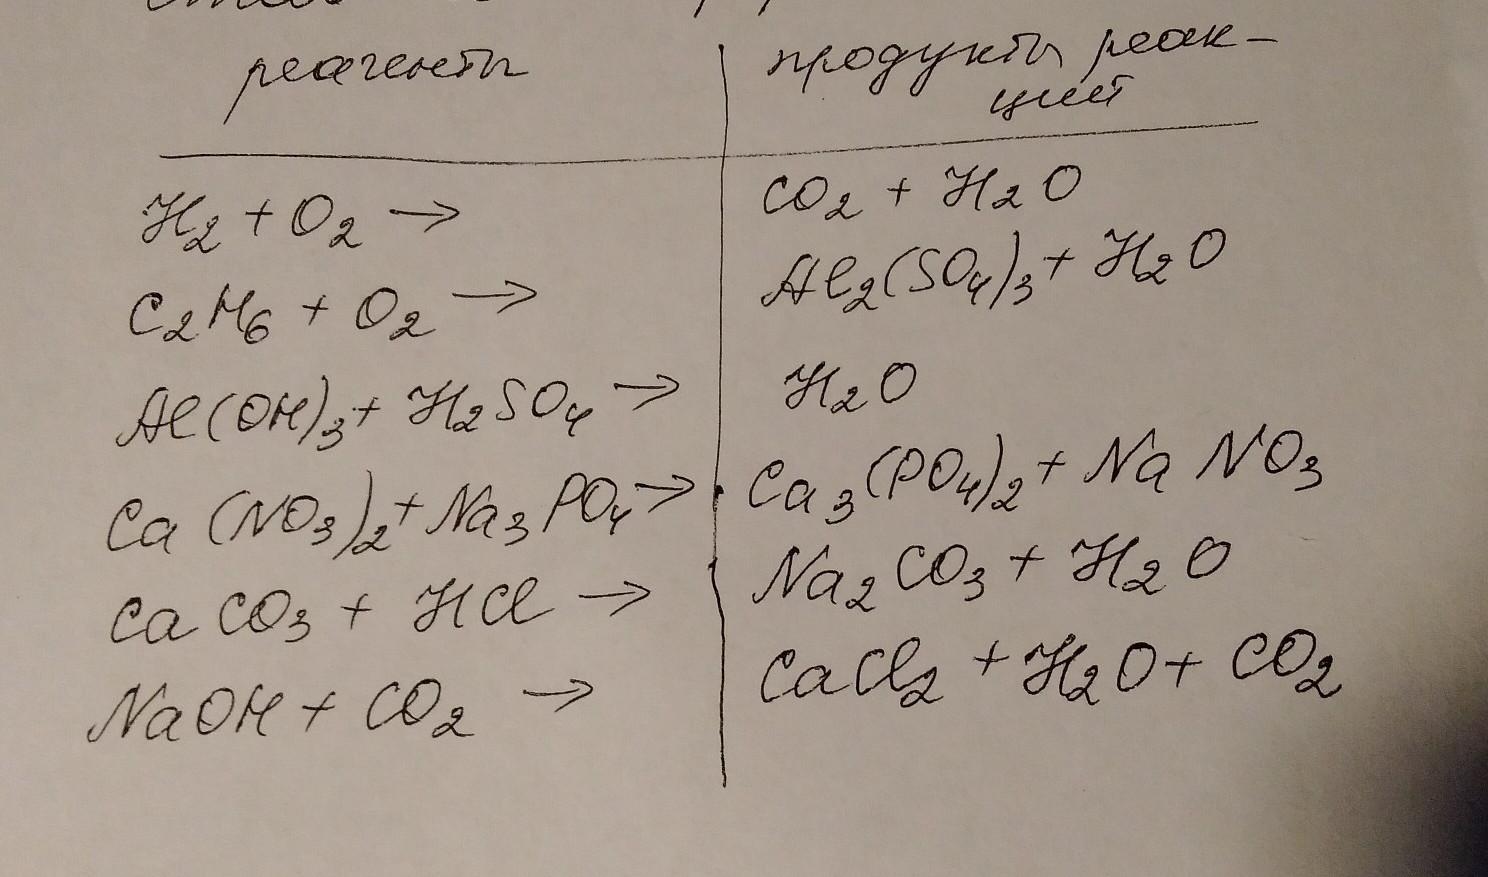 реагенты
продукты реак-
ций
H₂ + O₂ →
CO₂ + H₂O
C₂H₆ + O₂ →
Al₂(SO₄)₃ + H₂O
Al(OH)₃ + H₂SO₄ →
H₂O
Ca(NO₃)₂ + Na₃PO₄ →
Ca₃(PO₄)₂ + NaNO₃
CaCO₃ + HCl →
Na₂CO₃ + H₂O
NaOH + CO₂ →
CaCl₂ + H₂O + CO₂